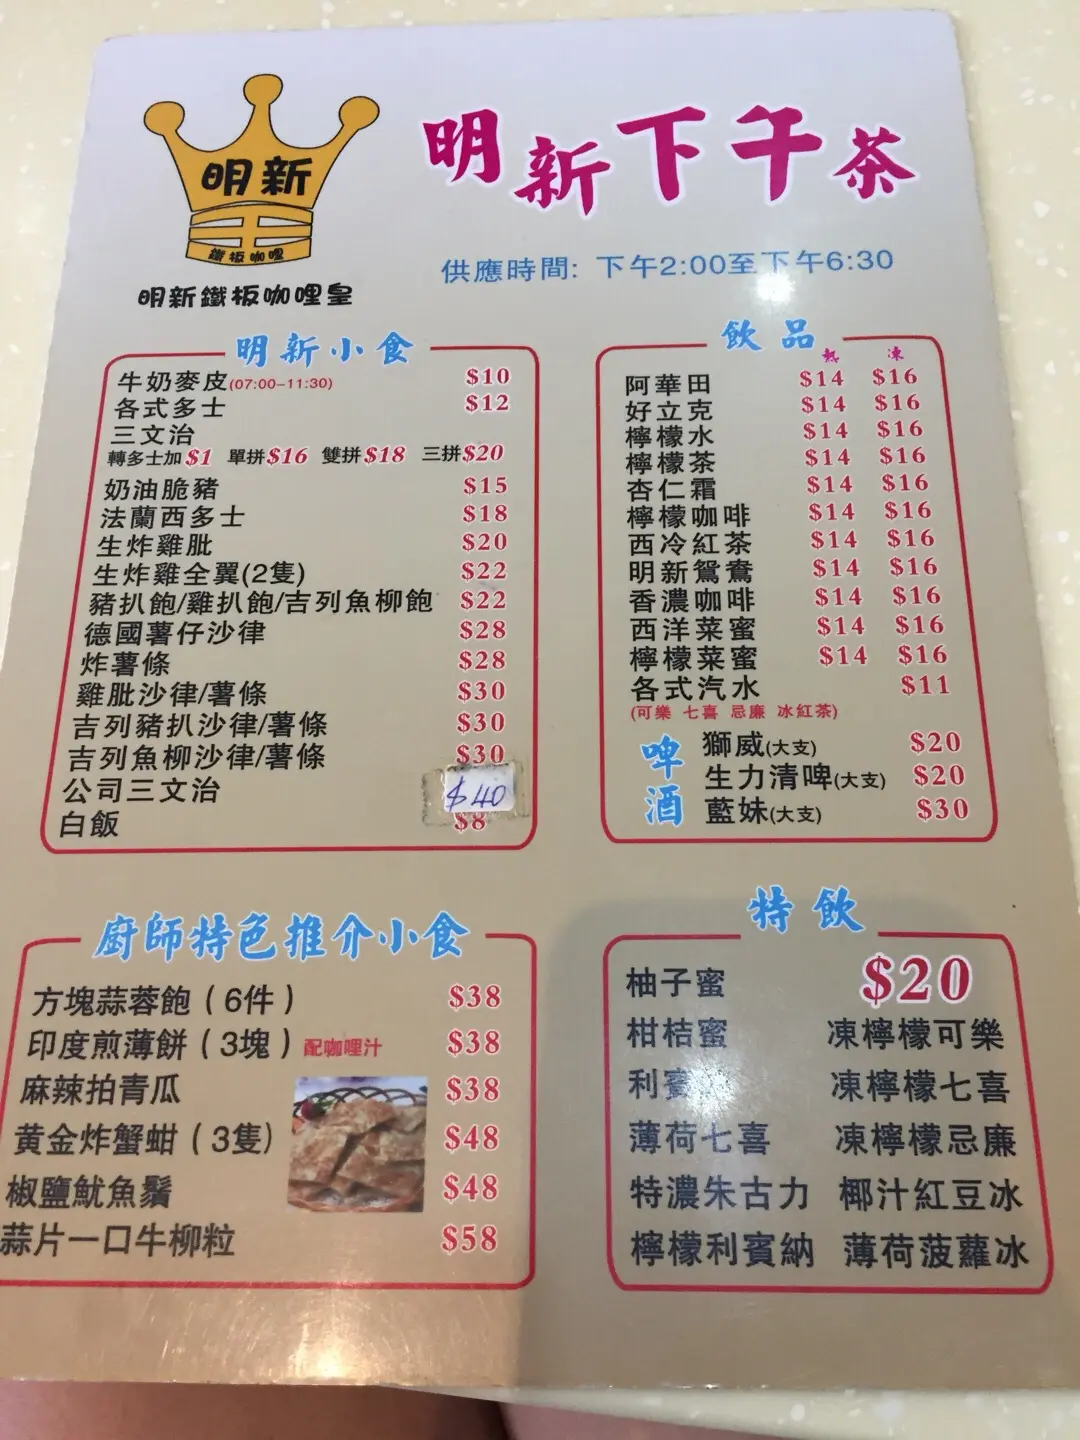 明新
鐵板咖哩
明新鐵板咖哩皇
明新下午茶
供應時間: 下午2:00至下午6:30
明新小食
牛奶麥皮(07:00-11:30) $10
各式多士 $12
三文治
轉多士加$1 單拼$16 雙拼$18 三拼$20
奶油脆豬 $15
法蘭西多士 $18
生炸雞肶 $20
生炸雞全翼(2隻) $22
豬扒飽/雞扒飽/吉列魚柳飽 $22
德國薯仔沙律 $28
炸薯條 $28
雞肶沙律/薯條 $30
吉列豬扒沙律/薯條 $30
吉列魚柳沙律/薯條 $30
公司三文治 $40
白飯 $8
飲品
熱 凍
阿華田 $14 $16
好立克 $14 $16
檸檬水 $14 $16
檸檬茶 $14 $16
杏仁霜 $14 $16
檸檬咖啡 $14 $16
西冷紅茶 $14 $16
明新鴛鴦 $14 $16
香濃咖啡 $14 $16
西洋菜蜜 $14 $16
檸檬菜蜜 $14 $16
各式汽水 $11
(可樂 七喜 忌廉 冰紅茶)
啤酒
獅威(大支) $20
生力清啤(大支) $20
藍妹(大支) $30
廚師特色推介小食
方塊蒜蓉飽(6件) $38
印度煎薄餅(3塊)配咖哩汁 $38
麻辣拍青瓜 $38
黄金炸蟹蚶(3隻) $48
椒鹽魷魚鬚 $48
蒜片一口牛柳粒 $58
特飲
柚子蜜 $20
柑桔蜜 凍檸檬可樂
利賓 凍檸檬七喜
薄荷七喜 凍檸檬忌廉
特濃朱古力 椰汁紅豆冰
檸檬利賓納 薄荷菠蘿冰